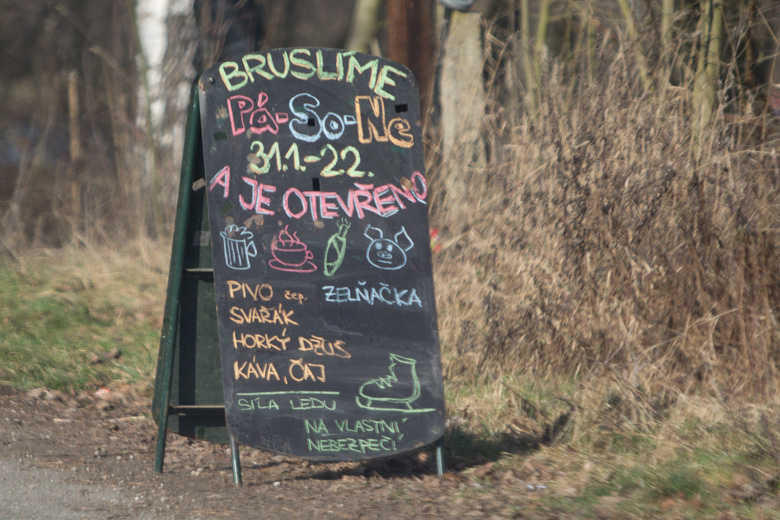 BRUSLÍME
Pá-So-Ne
31.1.-2.2.
A JE OTEVŘENO
PIVO čep. ZELŇAČKA
SVAŘÁK
HORKÝ DŽUS
KÁVA, ČAJ
SÍLA LEDU
NA VLASTNÍ
NEBEZPEČÍ